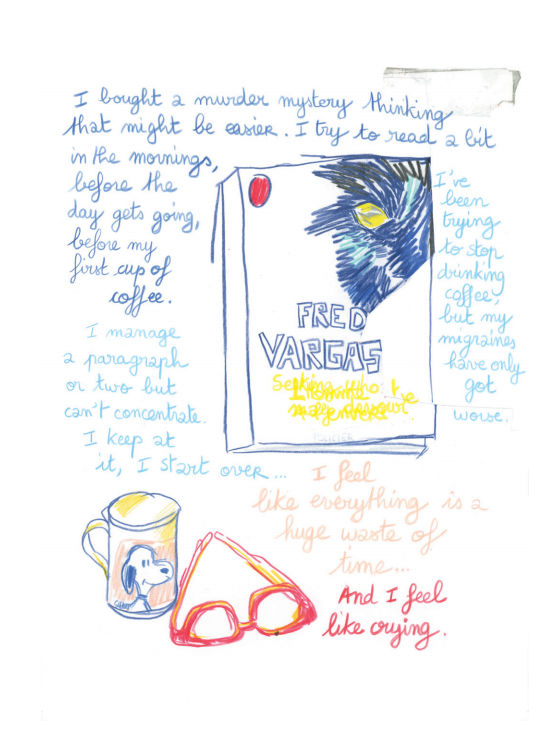 I bought a murder mystery thinking
that might be easier. I try to read a bit
in the mornings,
before the
day gets going,
before my
first cup of
coffee.
I've
been
trying
to stop
drinking
coffee,
but my
migraines
have only
got
worse.
FRED
VARGAS
I manage
a paragraph
or two but
can't concentrate.
I keep at
it, I start over...
I feel
like everything is a
huge waste of
time...
And I feel
like crying.